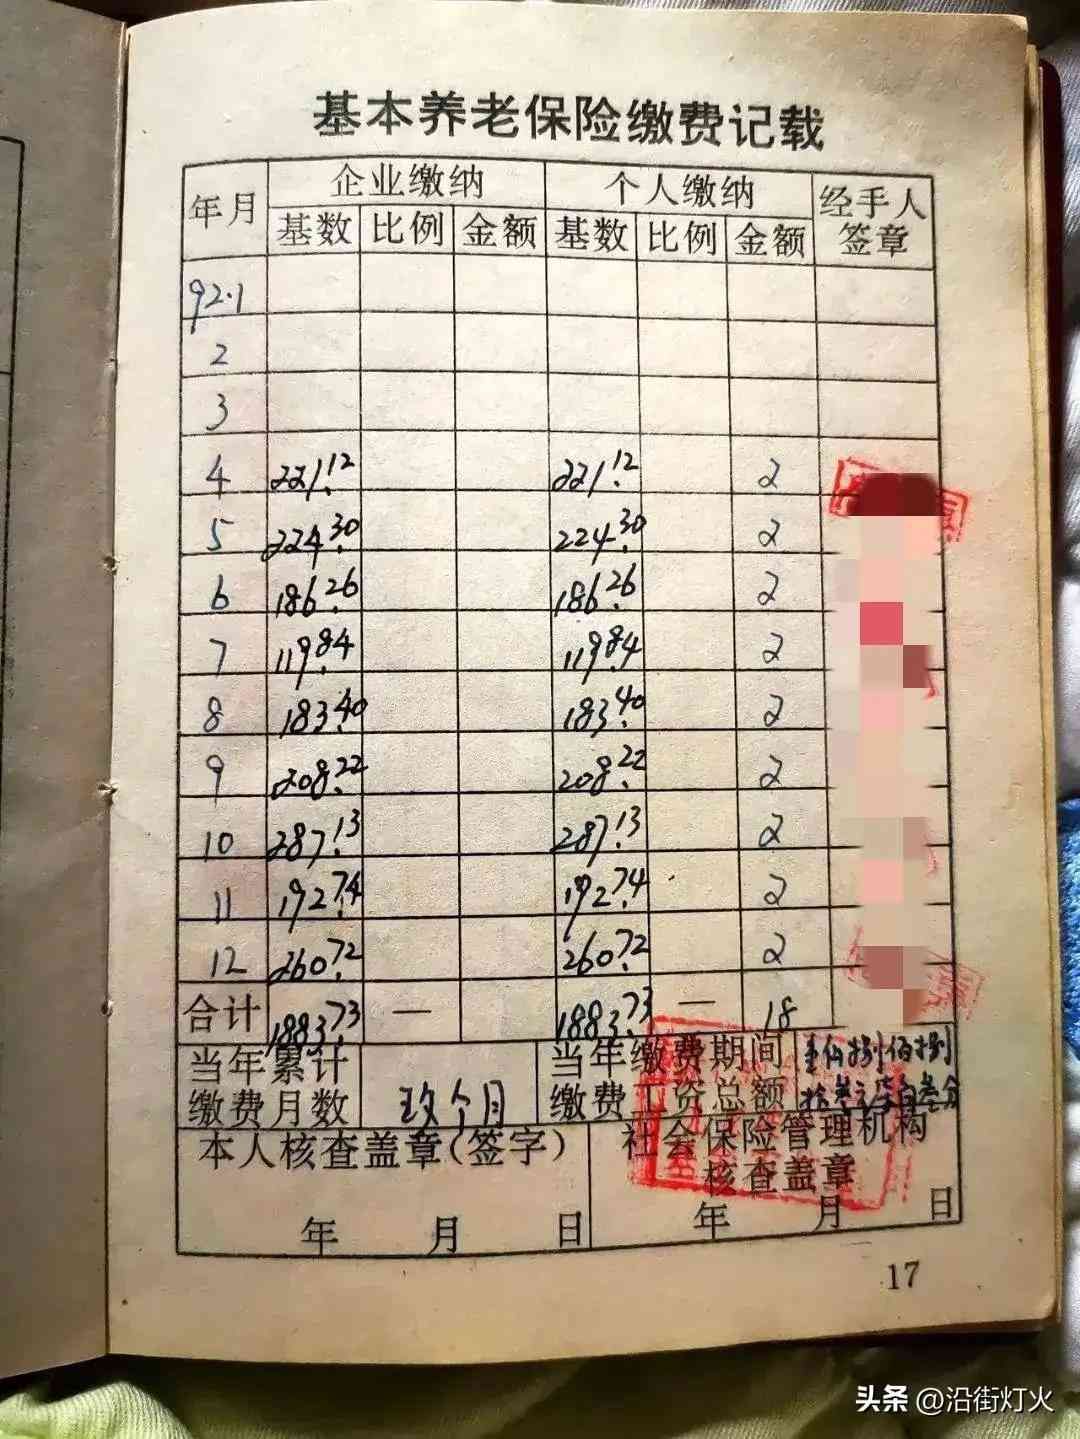 基本养老保险缴费记载
年月 企业缴纳 个人缴纳 经手人签章
基数 比例 金额 基数 比例 金额
92.1
2
3
4 221.12 221.12 2
5 224.30 224.30 2
6 186.26 186.26 2
7 119.84 119.84 2
8 183.40 183.40 2
9 208.22 208.22 2
10 287.13 287.13 2
11 192.74 192.74 2
12 260.72 260.72 2
合计 1883.73 — 1883.73 — 18
当年累计缴费月数 玖个月 当年缴费期间缴费工资总额
本人核查盖章(签字) 社会保险管理机构核查盖章
年 月 日 年 月 日
17
头条 @沿街灯火